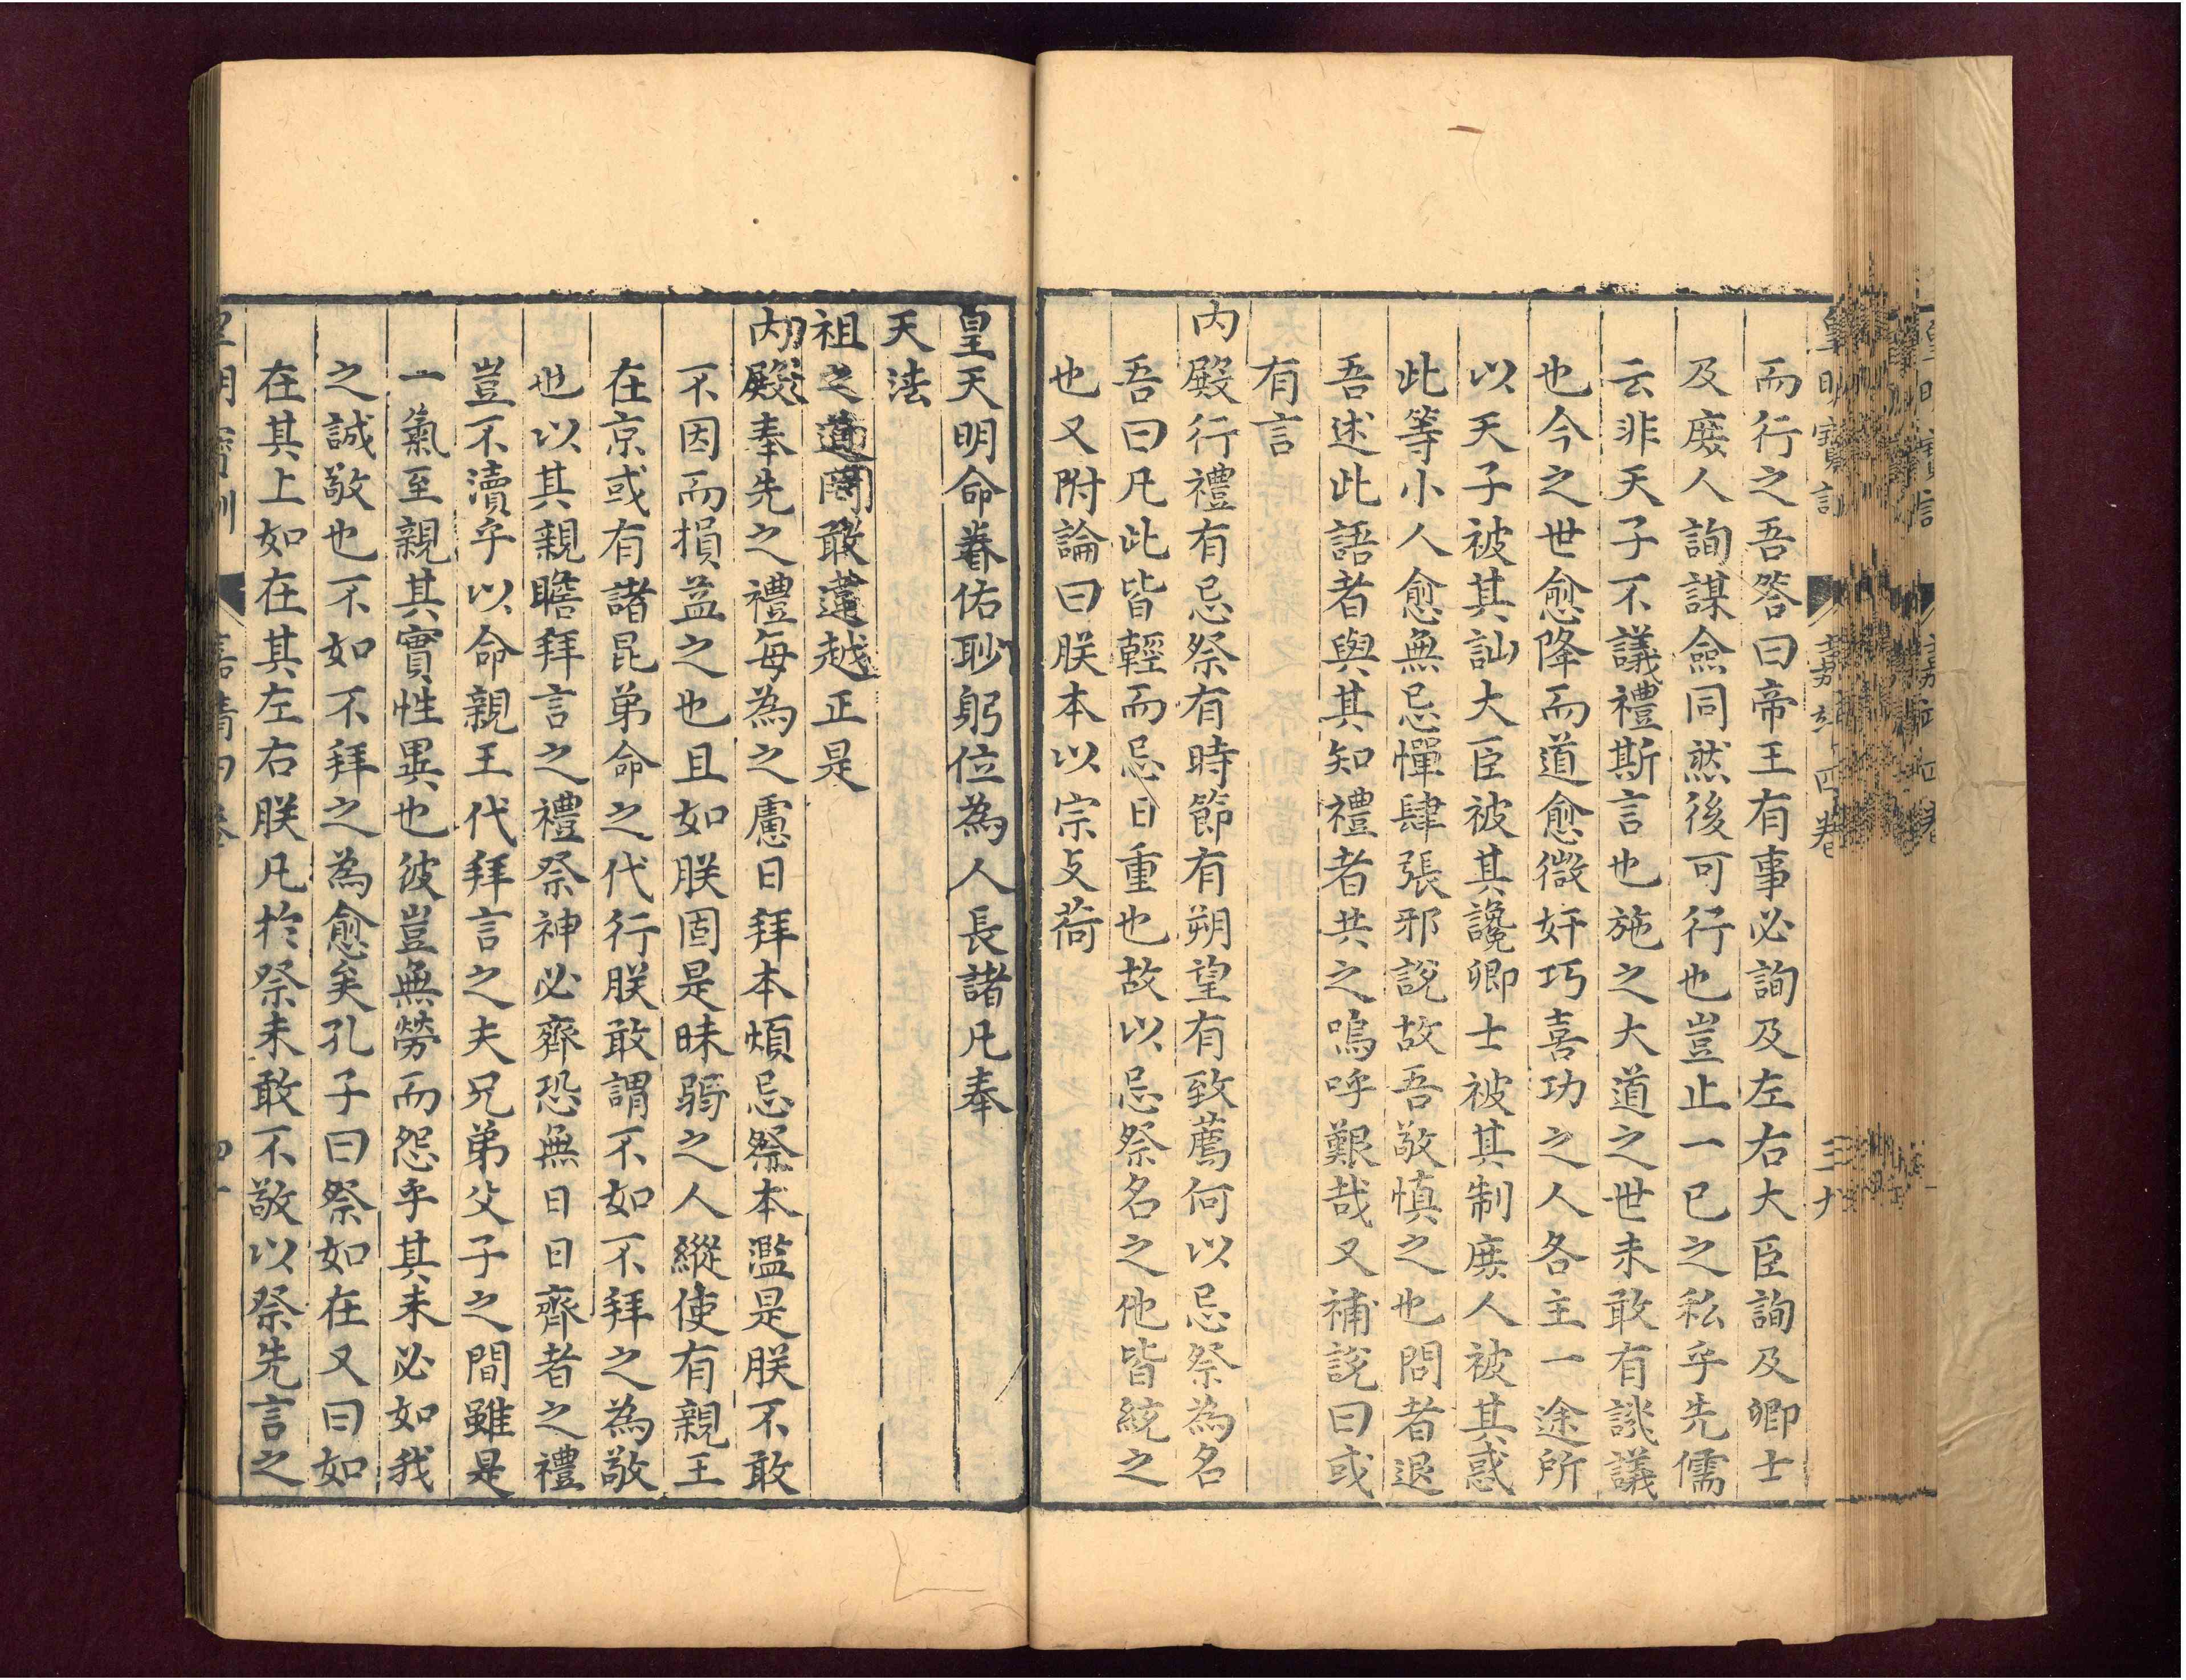 皇明寶訓 嘉靖四卷 三九
而行之吾答曰帝王有事必詢及左右大臣詢及卿士
及庶人詢謀僉同然後可行也豈止一已之私乎先儒
云非天子不議禮斯言也施之大道之世未敢有訛議
也今之世愈降而道愈微奸巧喜功之人各主一途所
以天子被其訕大臣被其讒卿士被其制庶人被其惑
此等小人愈無忌憚肆張邪說故吾敬慎之也問者退
吾述此語者與其知禮者共之嗚呼艱哉又補說曰或
有言
內殿行禮有忌祭有時節有朔望有致薦何以忌祭為名
吾曰凡此皆輕而忌日重也故以忌祭名之他皆統之
也又附論曰朕本以宗支荷
皇天明命眷佑眇躬位為人長諸凡奉
天法
祖之道罔敢違越正是
內殿奉先之禮每為之慮日拜本煩忌祭本濫是朕不敢
不因而損益之也且如朕固是昧弱之人縱使有親王
在京或有諸昆弟命之代行朕敢謂不如不拜之為敬
也以其親瞻拜言之禮祭神必齊恐無日日齊者之禮
豈不瀆乎以命親王代拜言之夫兄弟父子之間雖是
一氣至親其實性異也彼豈無勞而怨乎其未必如我
之誠敬也不如不拜之為愈矣孔子曰祭如在又曰如
在其上如在其左右朕凡於祭未敢不敬以祭先言之
皇明寶訓 嘉靖四卷